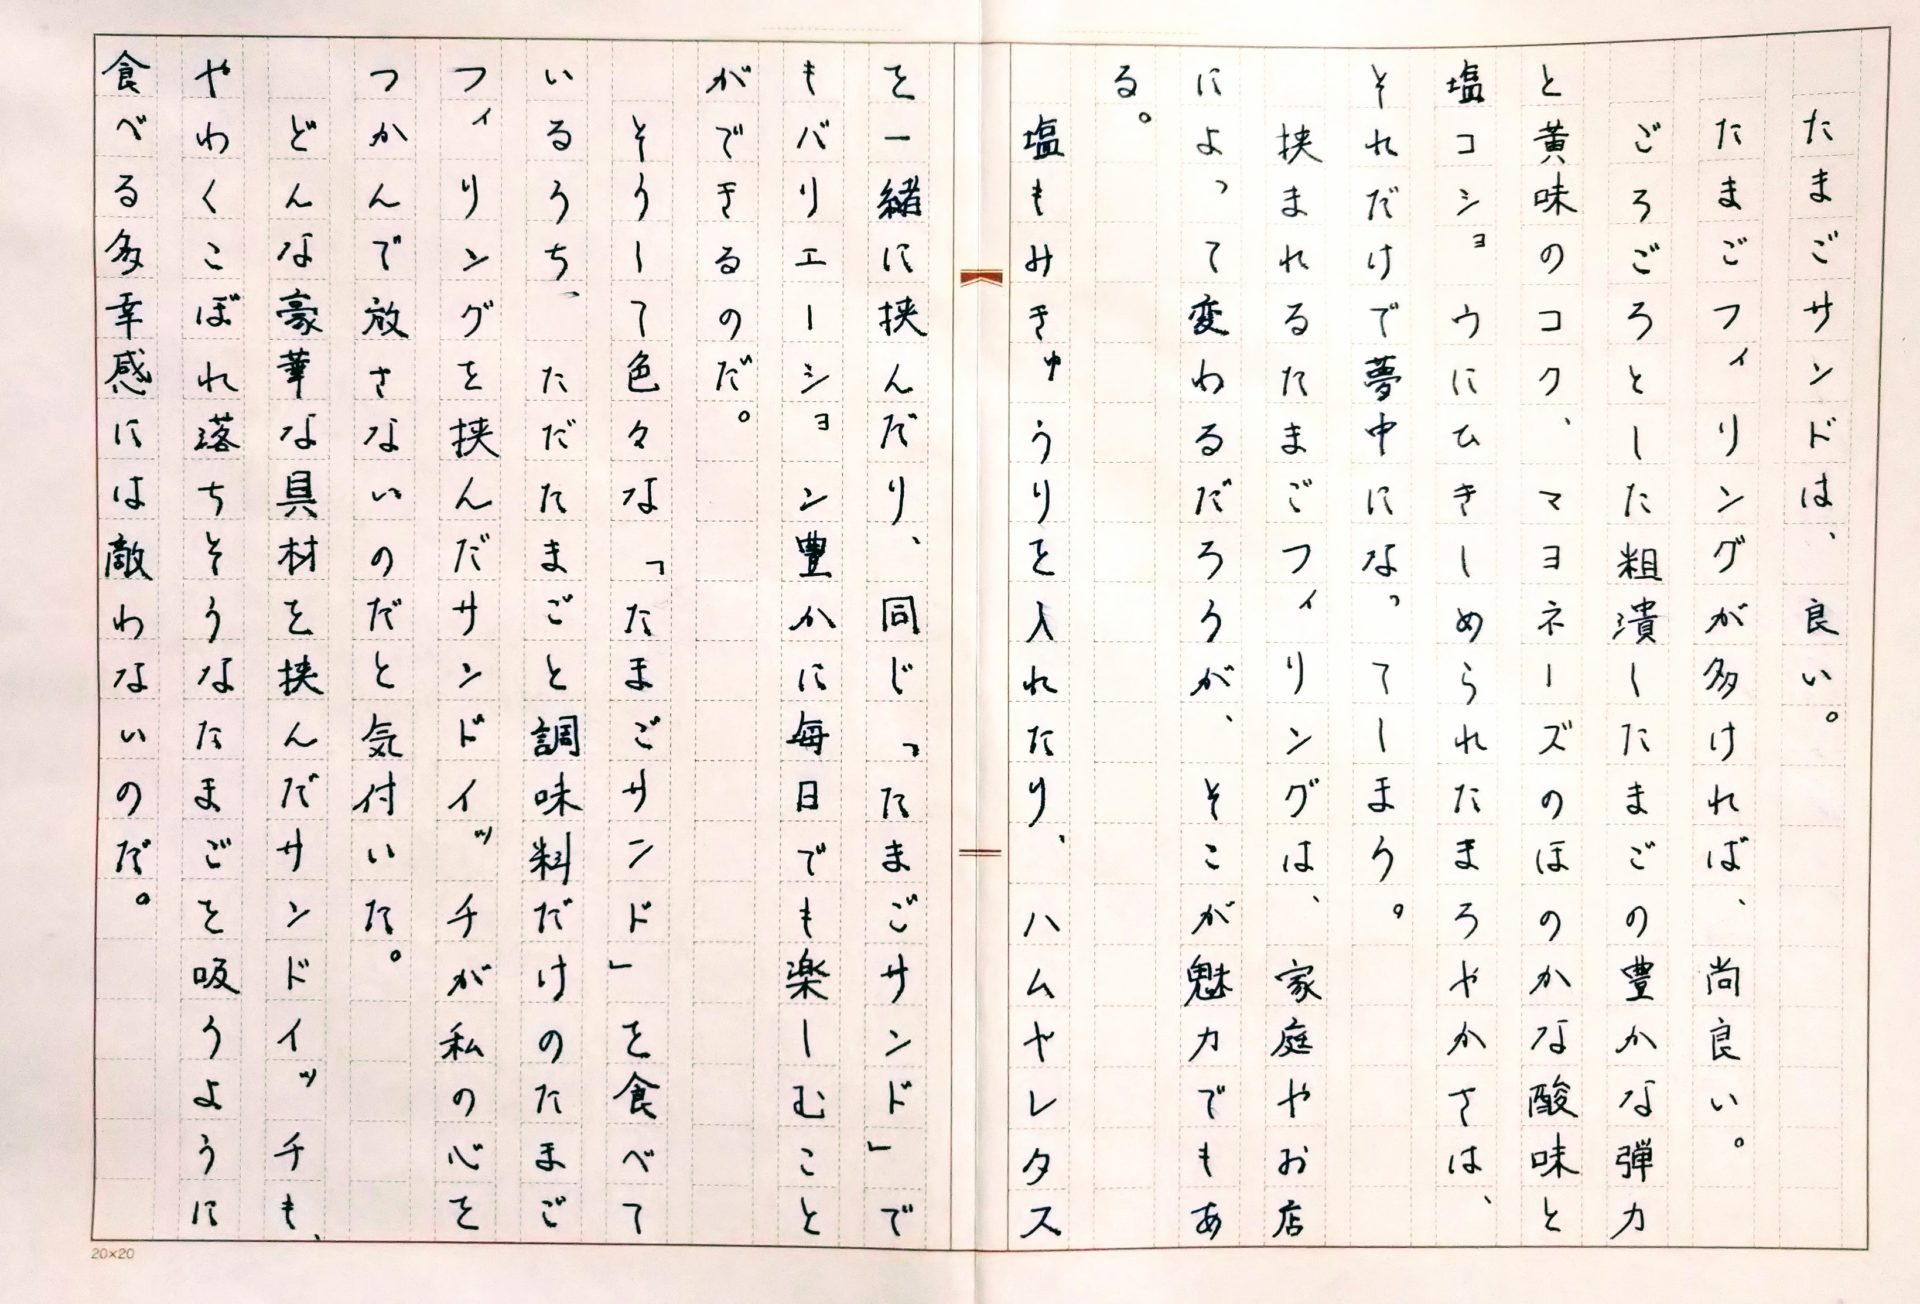 たまごサンドは、良い。
たまごフィリングが多ければ、尚良い。
ごろごろとした粗潰したまごの豊かな弾力
と黄味のコク、マヨネーズのほのかな酸味と
塩コショウにひきしめられたまろやかさは、
それだけで夢中になってしまう。
挟まれるたまごフィリングは、家庭やお店
によって変わるだろうが、そこが魅力でもあ
る。
塩もみきゅうりを入れたり、ハムヤレタス
を一緒に挟んだり、同じ「たまごサンド」で
もバリエーション豊かに毎日でも楽しむこと
ができるのだ。
そうして色々な「たまごサンド」を食べて
いるうち、ただたまごと調味料だけのたまご
フィリングを挟んだサンドイッチが私の心を
つかんで放さないのだと気付いた。
どんな豪華な具材を挟んだサンドイッチも、
やわくこぼれ落ちそうなたまごを吸うように
食べる多幸感には敵わないのだ。
20×20